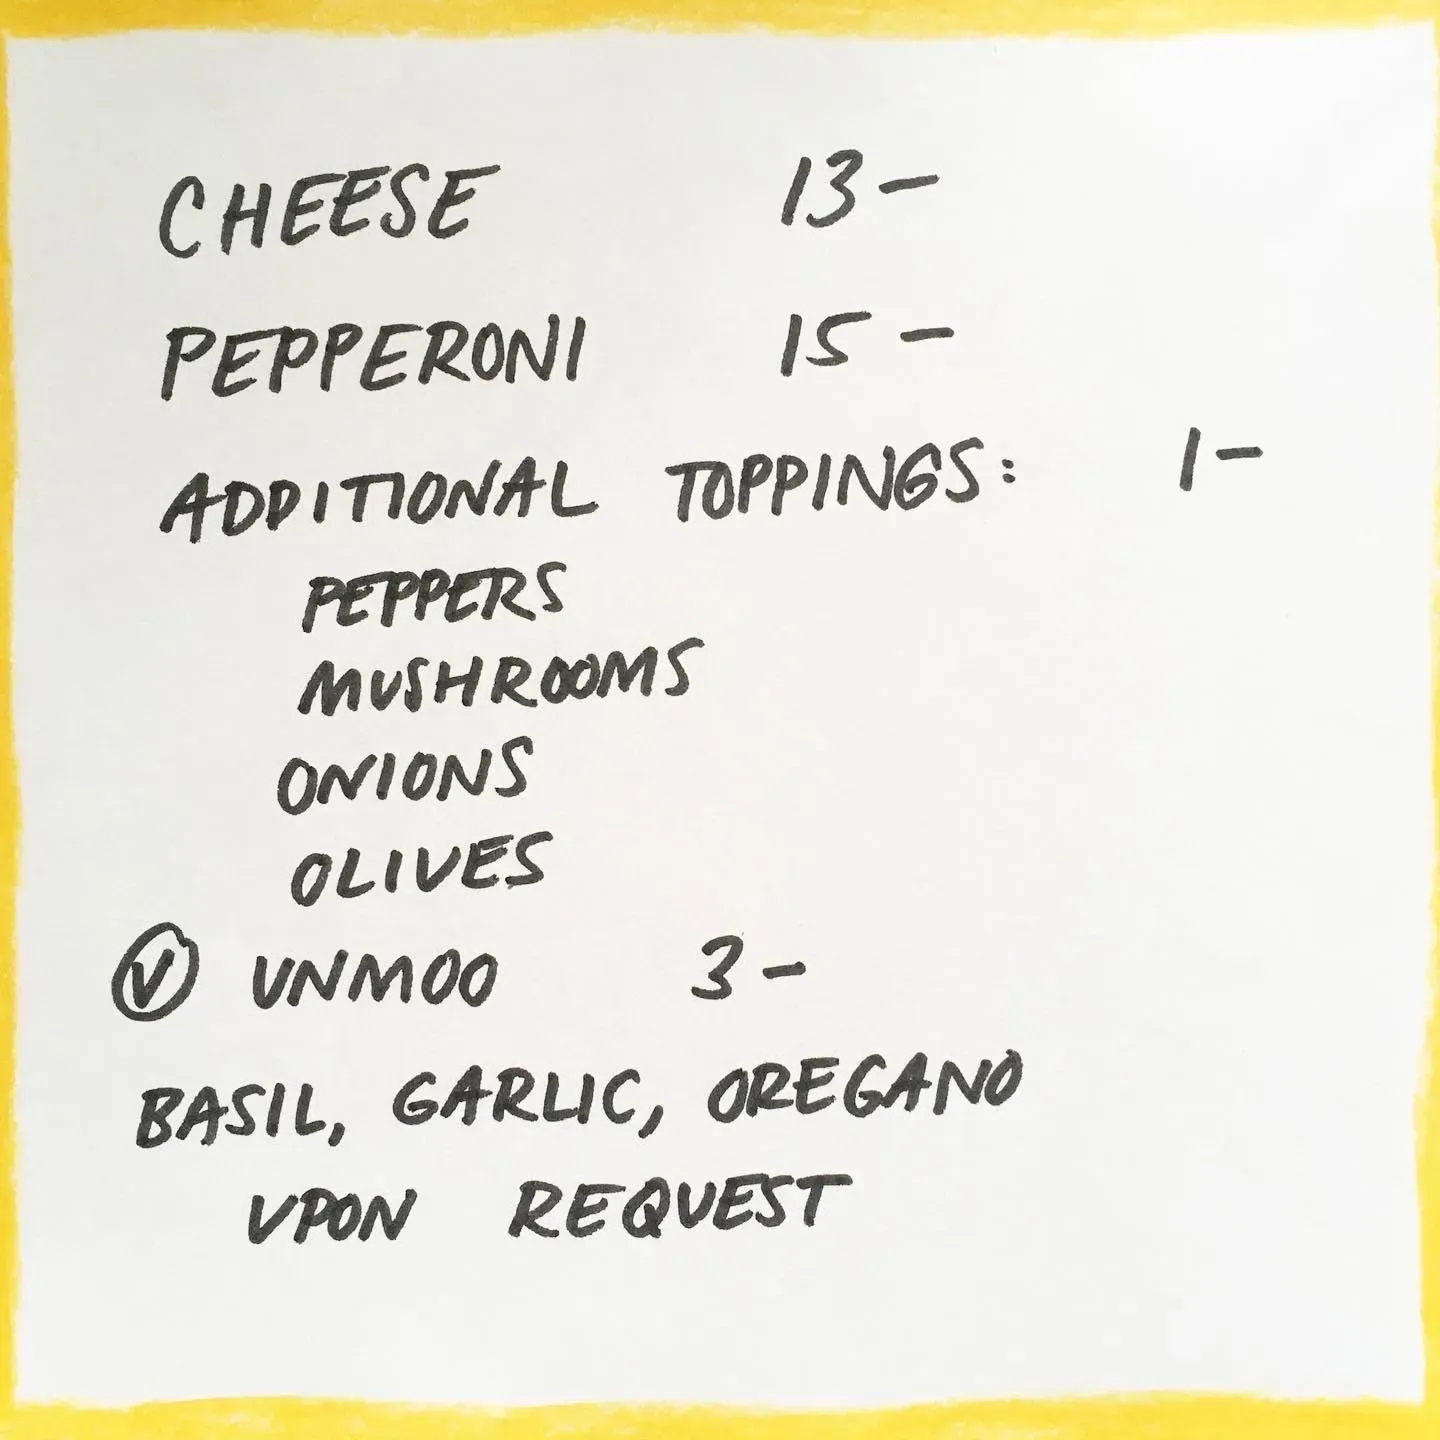 CHEESE 13-
PEPPERONI 15-
ADDITIONAL TOPPINGS: 1-
PEPPERS
MUSHROOMS
ONIONS
OLIVES
V UNMOO 3-
BASIL, GARLIC, OREGANO
UPON REQUEST